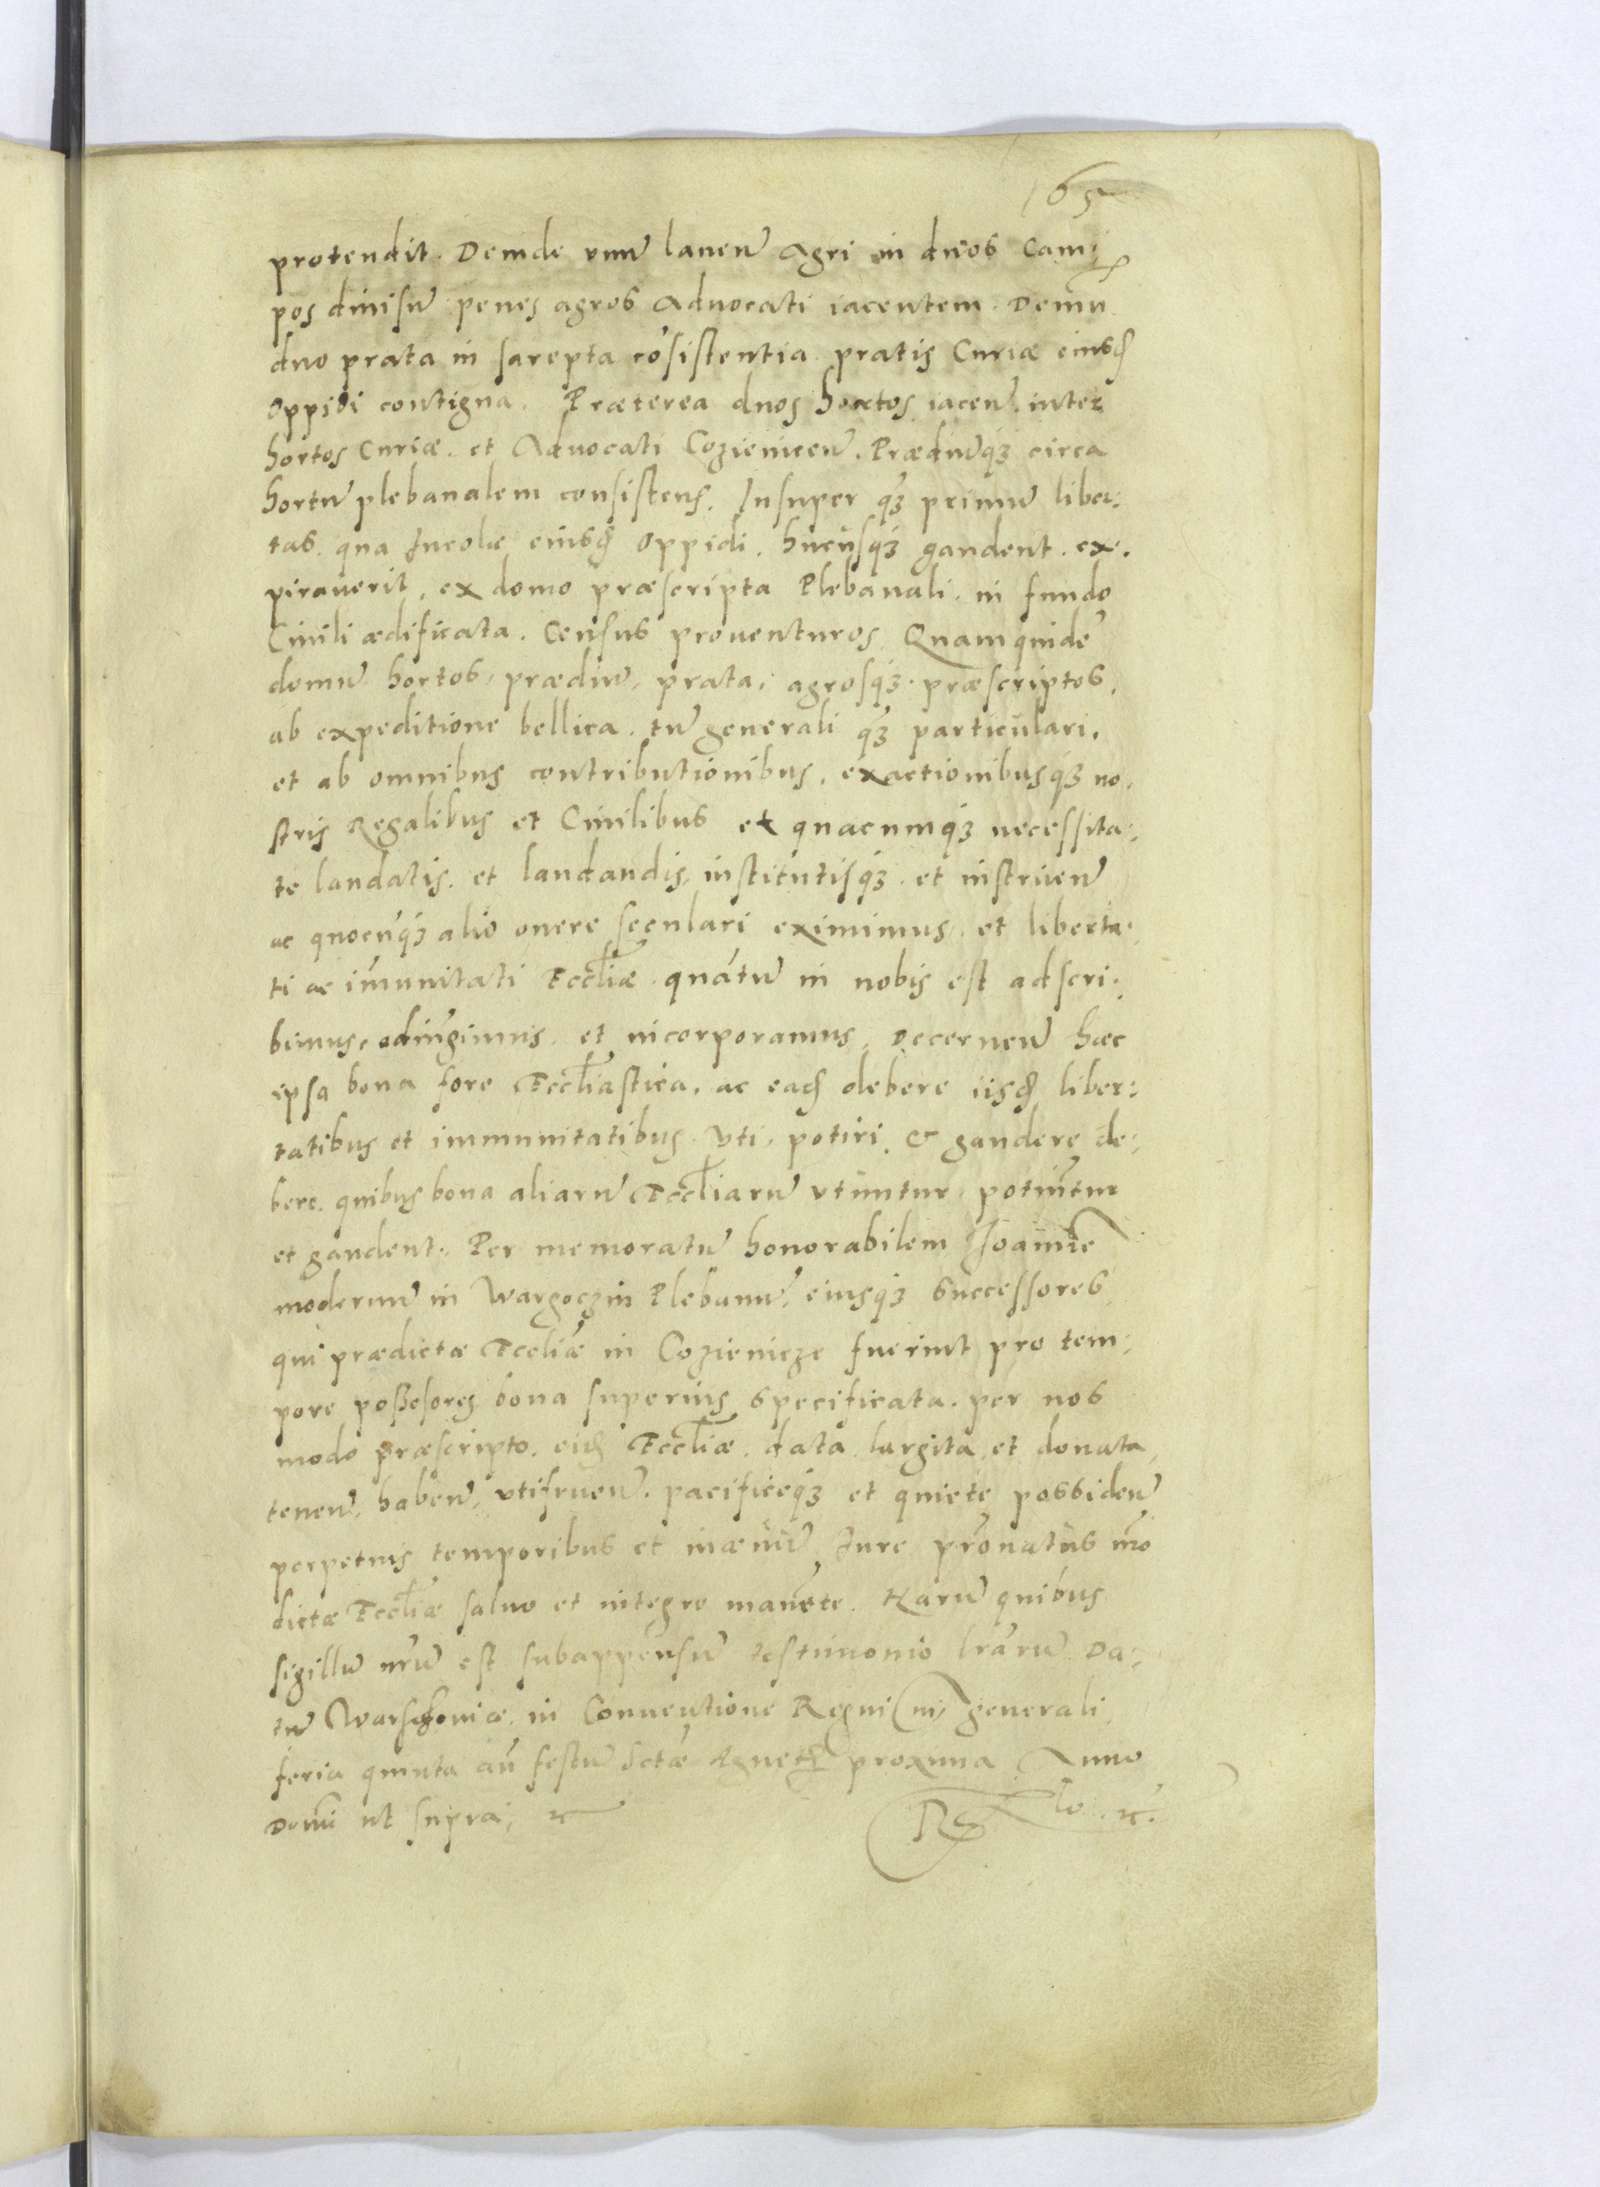 65
protendit. Deinde vnū laneū Agri in duos Cam⸗
pos diuisū penes agros Aduocati iacentem. Demū
duo prata in sarepta cōsistentia pratis Curiæ eiusd̄
Oppidi contigua. Præterea duos hortos iaceñ. inter
hortos Curiæ. et Aduocati Cozienicen̄. Prædiūq3 circa
hortū plebanalem consistens. Insuper q3 primū liber⸗
tas. qua Incolæ eiusd̄ Oppidi. hucusq3 gaudent. ex.
pirauerit, ex domo præscripta Plebanali. in fundo
Ciuili ædificata. Census prouenturos. Quamquidē
domū hortos, prædiū, prata, agrosq3. præscriptos,
ab expeditione bellica. tū generali q3 particulari.
et ab omnibus contributionibus, exactionibusq3 no.
stris Regalibus et Ciuilibus ex quacumq3 necessita⸗
te laudatis. et laudandis, institutisq3. et instituen̄
ac quocūq3 alio onere seculari eximimus, et liberta.
ti ac im̄unitati Eccl̄iæ. quātū in nobis est adscri.
bimus, adiūgimus. et incorporamus. Decernen̄ hæc
ipsa bona fore Eccl̄iastica. ac ead̄ debere iisd̄ liber⸗
tatibus et immunitatibus. vti, potiri, & gaudere de⸗
bere. quibus bona aliarū Eccl̄iarū vtuntur, potiūtur
et gaudent. Per memoratū honorabilem Joannē
modernū in Wargoczin Plebanū, eiusq3 Successores
qui prædictæ Eccl̄iæ in Cozienicze fuerint pro tem⸗
pore poßesores bona superius Specificata. per nos
modo præscripto. eid̄ Eccl̄iæ. data largita et donata,
tenen̄. haben̄, vtifruen̄. pacificeq3 et quiete possiden̄
perpetuis temporibus et in æuū Jure pr̄onatus m̄o
dictæ Eccl̄iæ saluo et integro manēte. Harū quibus
sigillū nr̄ū est subappensū testimonio lrārū Da⸗
tū Warschouiæ. in Conuentione Regni ni generali
feria quinta añ festū sctæ Agnet̄ proxima Anno
Domī ut supra, &c Rs &c.